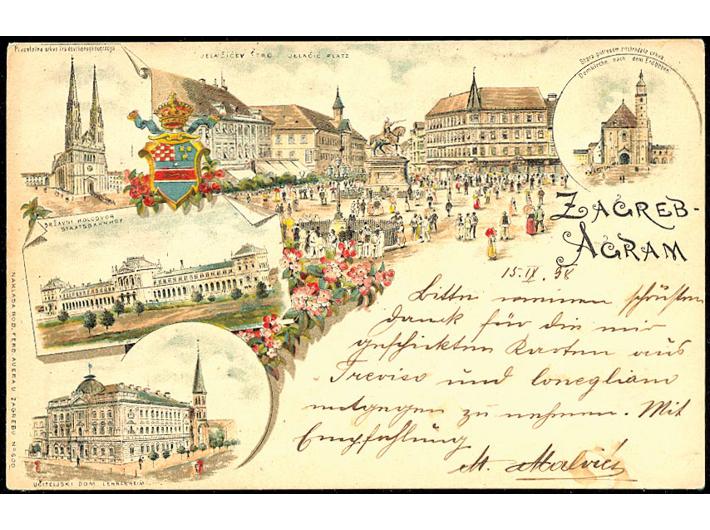 Prvostolna crkva iza dovršenoga
JELAČIĆEV TRG   JELAČIĆ PLATZ
Stara potresom postradala crkva
Domkirche nach dem Erdbeben
DRŽAVNI KOLODVOR
STAATSBAHNHOF
ZAGREB-
AGRAM
15. IX. 98
Bitte meinen schönsten
Dank für die mir
geschickten Karten aus
Treviso und Conegliano
entgegen zu nehmen. Mit
Empfehlung
M.
UČITELJSKI DOM LEHRERHEIM
NAKLADA ROD. FERD. AUERA U ZAGREBU Nº 600